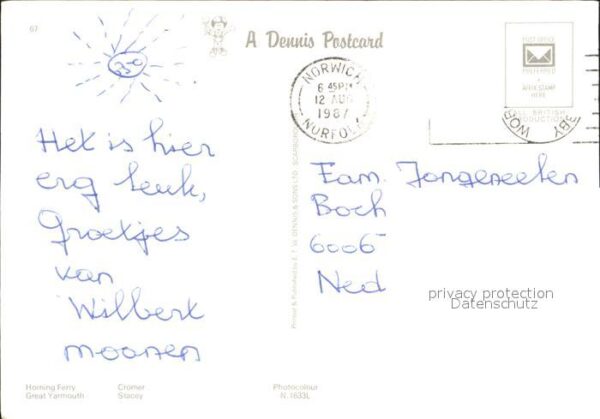 67
A Dennis Postcard
POST OFFICE
PREFERRED
AFFIX STAMP
HERE
ALL BRITISH
PRODUCTION
NORWICH
6 45PM
12 AUG
1987
NORFOLK
Het is hier
erg leuk,
Groetjes
van
Wilbert
moonen
Fam. Jongeneelen
Boch
6006
Ned
Printed & Published by E. T. W. DENNIS & SONS LTD. SCARBOROUGH
privacy protection
Datenschutz
Horning Ferry Cromer
Great Yarmouth Stacey
Photocolour
N.1633L